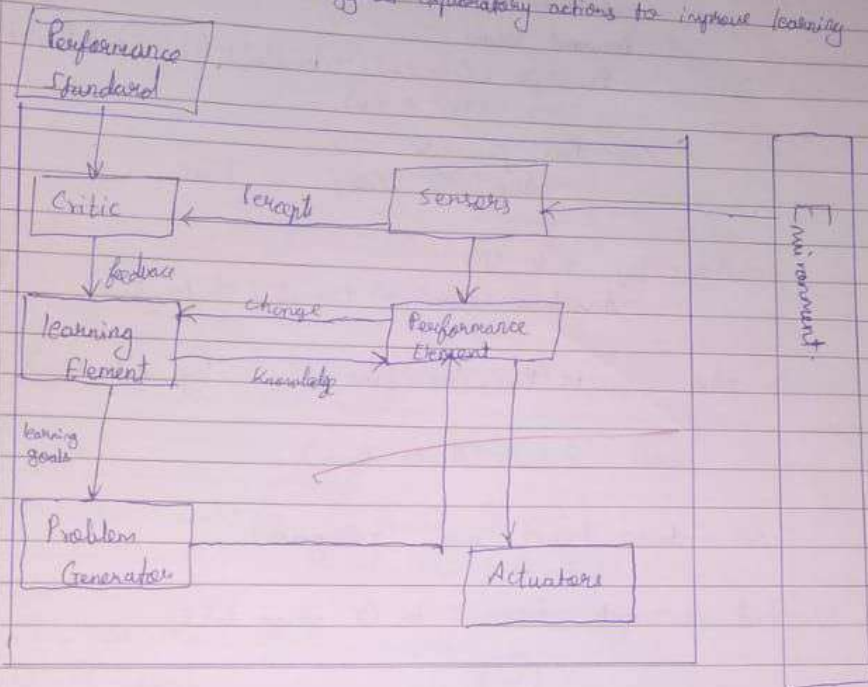 exploratory actions to improve learning
Performance
Standard
Critic
Percepts
Sensors
Environment.
feedback
learning
Element
change
Performance
Element
Knowledg
learning
goals
Problem
Generator
Actuators